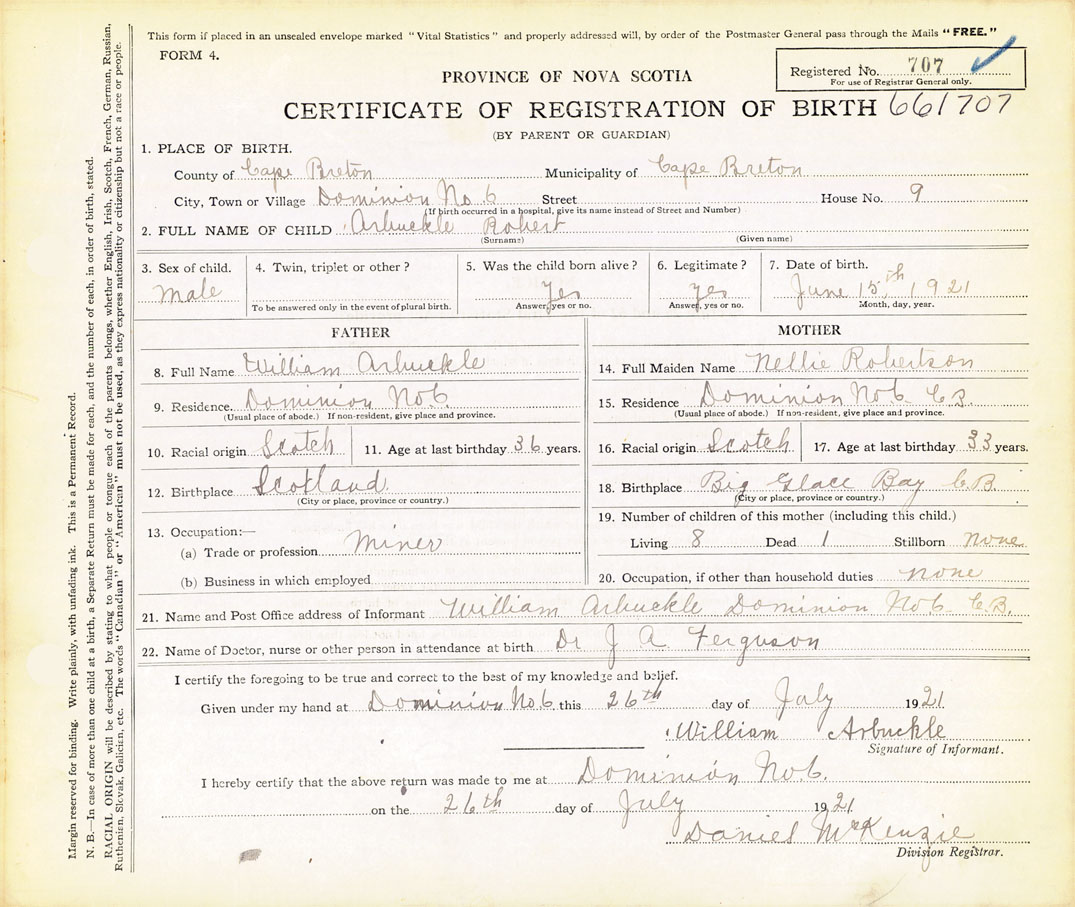 This form if placed in an unsealed envelope marked "Vital Statistics" and properly addressed will, by order of the Postmaster General pass through the Mails "FREE."
FORM 4.
Registered No. 707
For use of Registrar General only.
PROVINCE OF NOVA SCOTIA
CERTIFICATE OF REGISTRATION OF BIRTH 661707
(BY PARENT OR GUARDIAN)
1. PLACE OF BIRTH.
County of Cape Breton Municipality of Cape Breton
City, Town or Village Dominion No. 6 Street House No. 9
(If birth occurred in a hospital, give its name instead of Street and Number)
2. FULL NAME OF CHILD Arbuckle Robert
(Surname) (Given name)
3. Sex of child. 4. Twin, triplet or other? 5. Was the child born alive? 6. Legitimate? 7. Date of birth.
Male Yes yes June 15th, 1921
To be answered only in the event of plural birth. Answer, yes or no. Answer, yes or no. Month, day, year.
FATHER
8. Full Name William Arbuckle
9. Residence. Dominion No 6
(Usual place of abode.) If non-resident, give place and province.
10. Racial origin Scotch 11. Age at last birthday 36 years.
12. Birthplace Scotland
(City or place, province or country.)
13. Occupation:—
(a) Trade or profession Miner
(b) Business in which employed
MOTHER
14. Full Maiden Name Nellie Robertson
15. Residence Dominion No 6 C.B.
(Usual place of abode.) If non-resident, give place and province.
16. Racial origin Scotch 17. Age at last birthday 33 years.
18. Birthplace Big Glace Bay C.B.
(City or place, province or country.)
19. Number of children of this mother (including this child.)
Living 8 Dead 1 Stillborn None
20. Occupation, if other than household duties none
21. Name and Post Office address of Informant William Arbuckle Dominion No 6 C.B.
22. Name of Doctor, nurse or other person in attendance at birth Dr J A. Ferguson
I certify the foregoing to be true and correct to the best of my knowledge and belief.
Given under my hand at Dominion No. 6 this 26th day of July 1921
William Arbuckle
Signature of Informant.
I hereby certify that the above return was made to me at Dominion No. 6.
on the 26th day of July 1921
Daniel McKenzie
Division Registrar.
Margin reserved for binding. Write plainly, with unfading ink. This is a Permanent Record.
N. B.—In case of more than one child at a birth, a Separate Return must be made for each, and the number of each, in order of birth, stated.
RACIAL ORIGIN will be described by stating to what people or tongue each of the parents belongs, whether English, Irish, Scotch, French, German, Russian,
Ruthenian, Slovak, Galician, etc. The words "Canadian" or "American" must not be used, as they express nationality or citizenship but not a race or people.